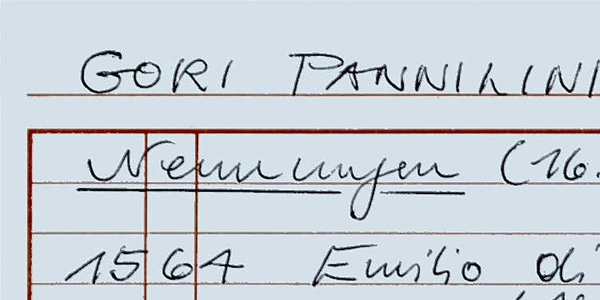 GORI PANNILINI
Nennungen (16.
1564 Emilio di